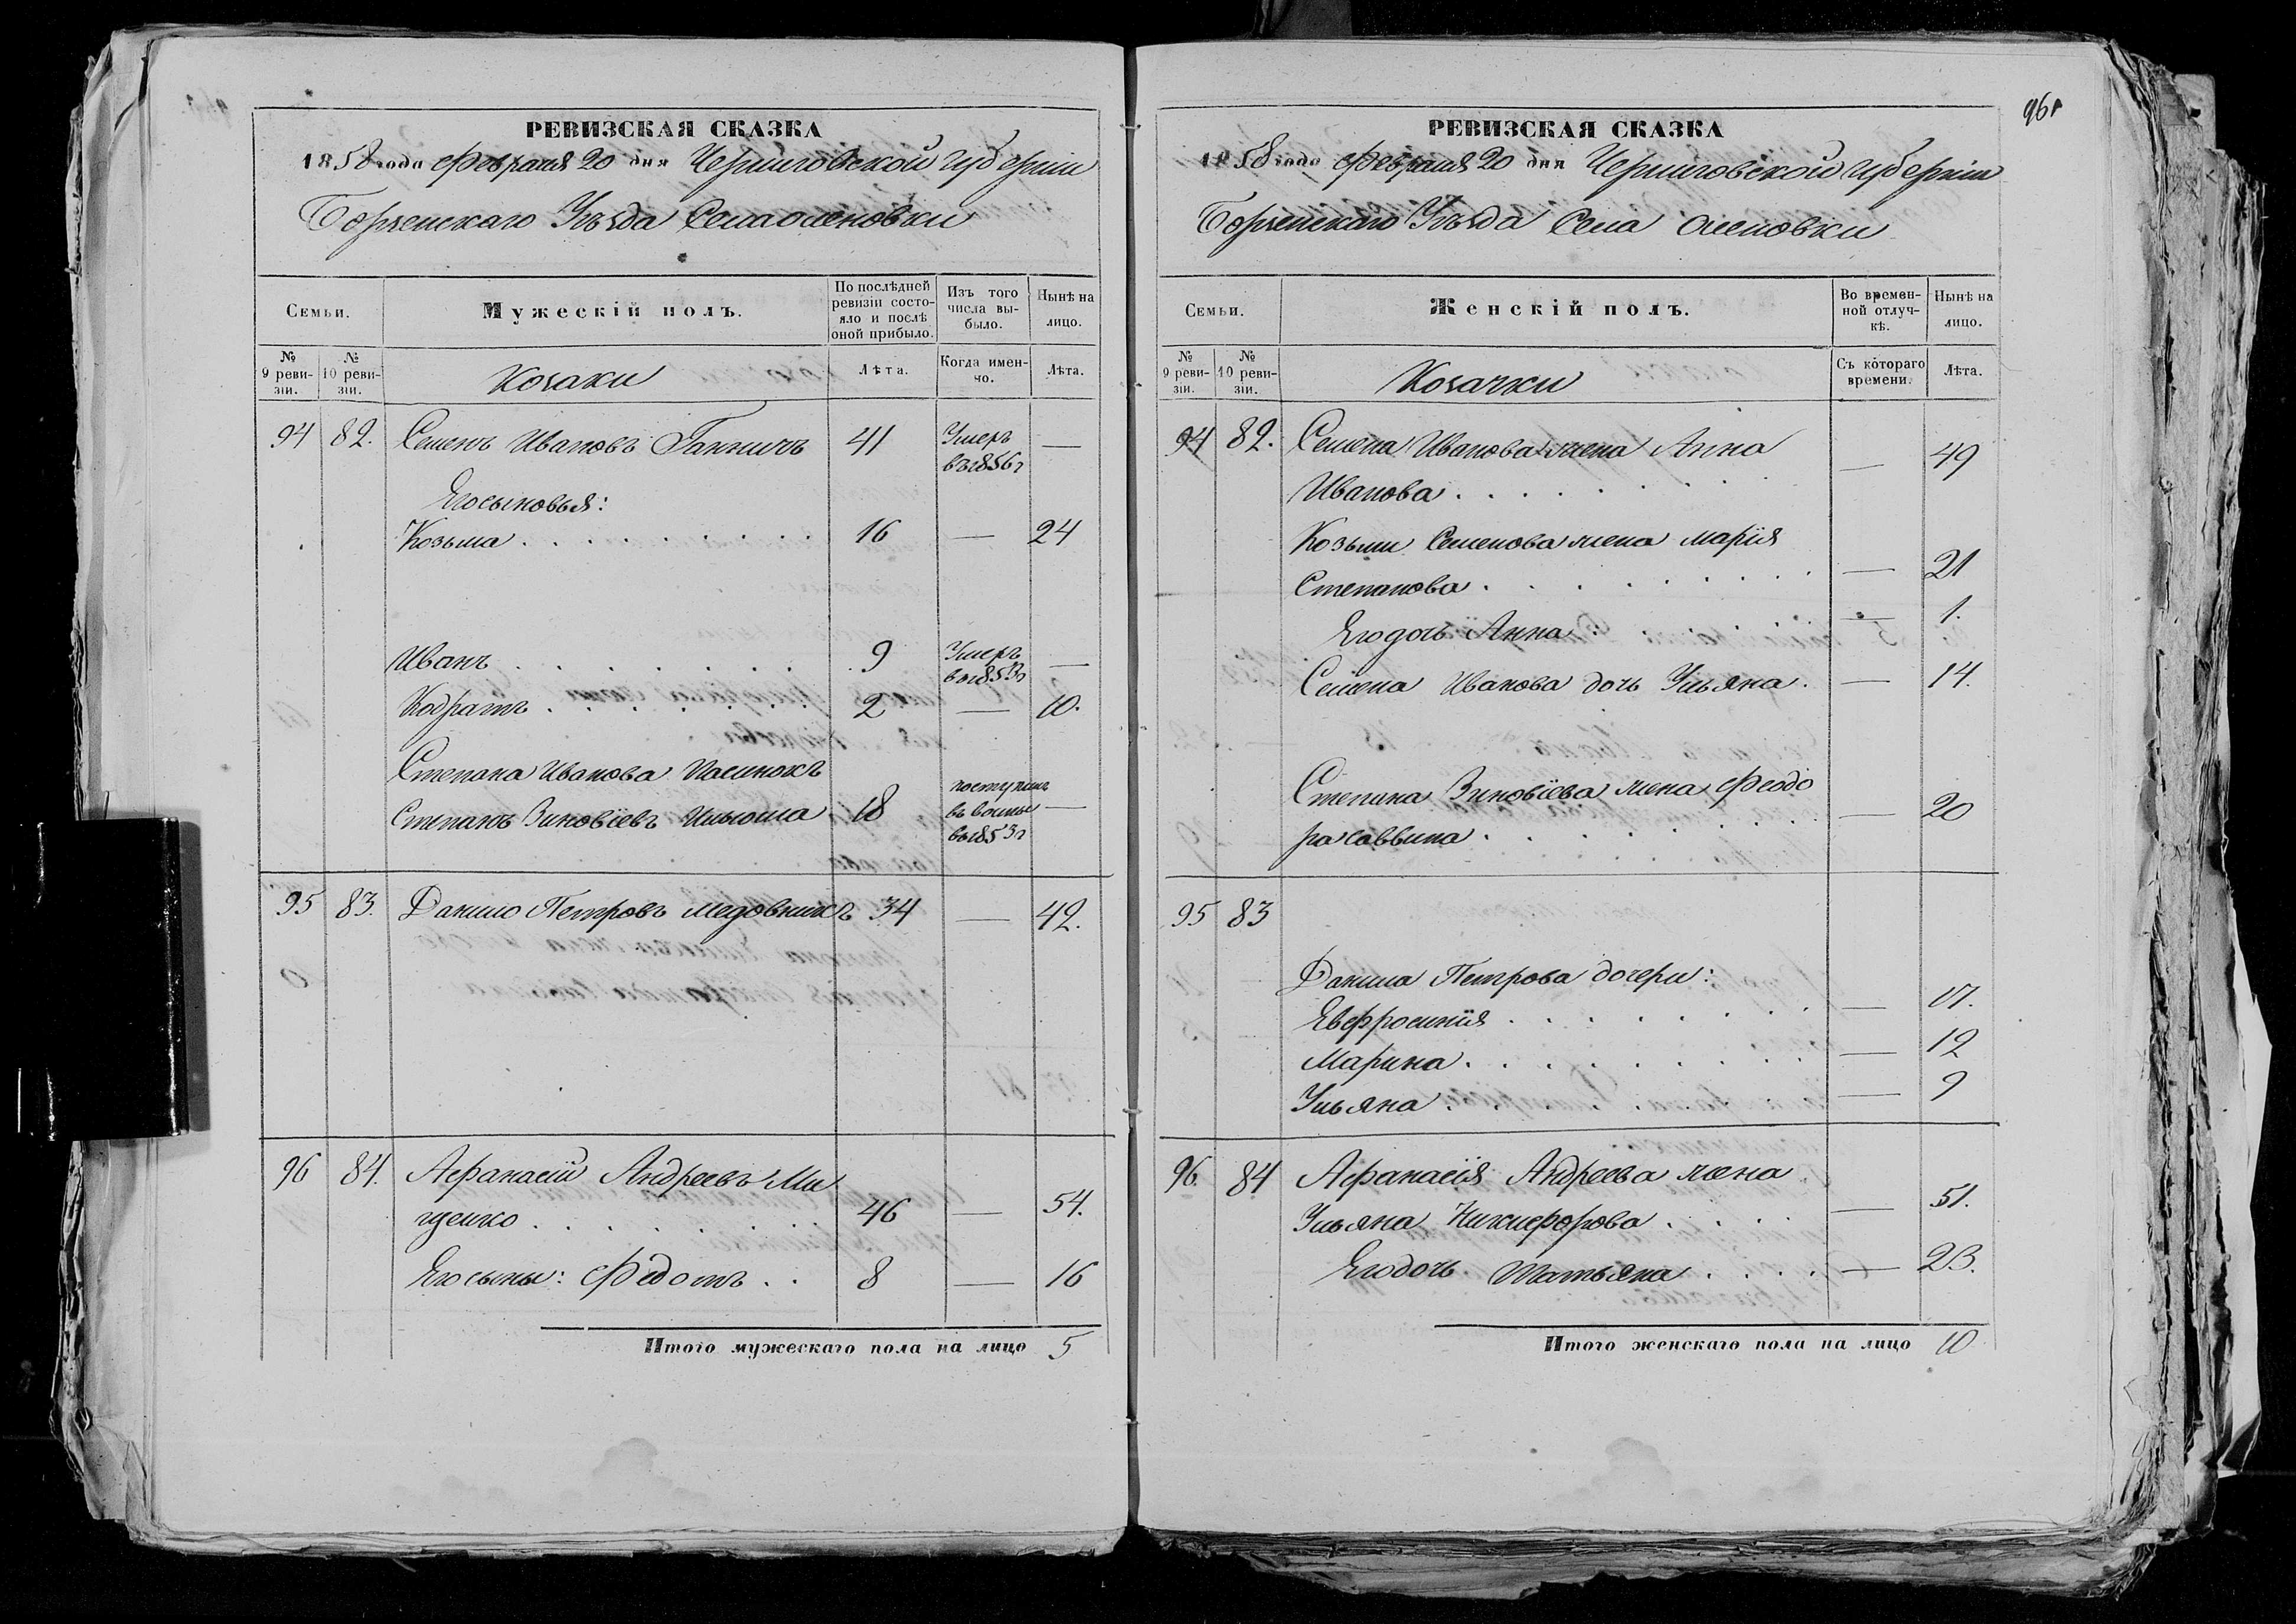 РЕВИЗСКАЯ СКАЗКА
1858 года Февраля 20 дня Черниговской губернiи
Борзенскаго Уѣзда Села Оленовки
Семьи.
Мужескiй полъ.
По послѣдней ревизiи состояло и послѣ оной прибыло.
Изъ того числа выбыло.
Нынѣ на лицо.
№ 9 ревизiи.
№ 10 ревизiи.
Козаки
Лѣта.
Когда именно.
Лѣта.
94 82. Семенъ Ивановъ 41 Умеръ —
въ 1856 г
Его сыновья:
Козьма 16 — 24
Иванъ 9 Умеръ —
в 1853 г
Кодратъ 2 — 10.
Степана Иванова Пасинокъ
Степанъ Зиновiевъ Ильюша 18 поступилъ
въ
в 1853 г —
95 83. Данило Петровъ Медовникъ 34 — 42.
96 84. Афанасiй Андреевъ Ми
щенко 46 — 54.
Его сынъ: Федотъ 8 — 16
Итого мужескаго пола на лицо 5
961
РЕВИЗСКАЯ СКАЗКА
1858 года Февраля 20 дня Черниговской губернiи
Борзенскаго Уѣзда Села Оленовки
Семьи.
Женскiй полъ.
Во временной отлучкѣ.
Нынѣ на лицо.
№ 9 ревизiи.
№ 10 ревизiи.
Козачки
Съ котораго времени.
Лѣта.
94 82. Семена Иванова жена Анна
Иванова — 49
Козьми Семенова жена Марiя
Степанова — 21
Его дочь Анна — 1.
Семена Иванова дочь Ульяна. — 14.
Степана Зиновiева жена Феодо
ра Саввина — 20
95 83
Данила Петрова дочери:
Евфросинiя — 17.
Марина — 12
Ульяна — 9
96. 84 Афанасiя Андреева жена
Ульяна Никифорова — 51.
Его дочь Татьяна — 23.
Итого женскаго пола на лицо 10